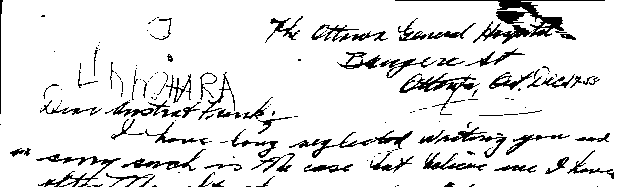 The Ottawa General Hospital
Bruyere St
Ottawa, Ont. Dec 17-53
OHARA
Dear
I have long neglected writing you and
am sorry such is the case but believe me I have